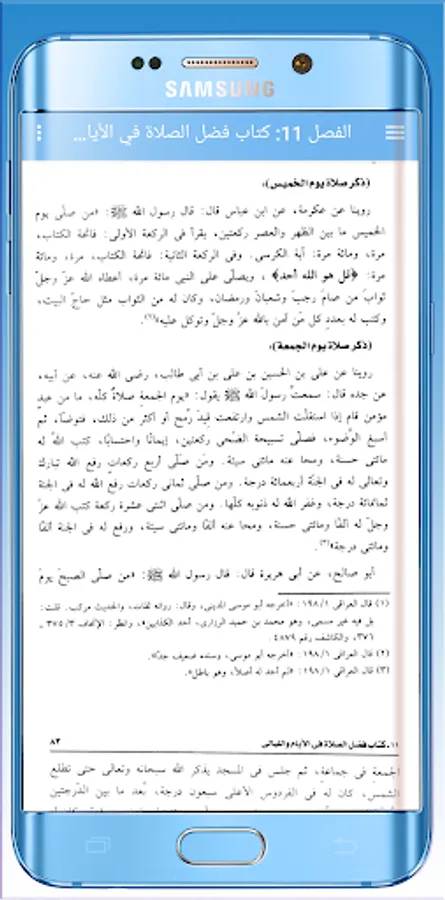 SAMSUNG
الفصل 11: كتاب فضل الصلاة في الأيا...
(ذكر صلاة يوم الخميس):
روينا عن عكرمة، عن ابن عباس قال: قال رسول الله ﷺ: «من صلّى يوم
الخميس ما بين الظهر والعصر ركعتين، يقرأ في الركعة الأولى: فاتحة الكتاب،
مرة، ومائة مرة: آية الكرسي. وفي الركعة الثانية: فاتحة الكتاب، مرة، ومائة
مرة: ﴿قل هو الله أحد﴾ ، ويصلّى على النبي مائة مرة، أعطاه الله عزّ وجلّ
ثوابَ من صامَ رجبَ وشعبانَ ورمضان، وكان له من الثواب مثل حاجّ البيت،
وكتب له بعددِ كلّ من آمن بالله عزّ وجلّ وتوكل عليه»(٢).
(ذكر صلاة يوم الجمعة):
روينا عن على بن الحسين بن على بن أبى طالب، رضى الله عنه، عن أبيه،
عن جده قال: سمعتُ رسولَ الله ﷺ يقول: «يوم الجمعة صلاةٌ كلّه، ما من عبدٍ
مؤمن قام إذا استقلّت الشمس وارتفعت قِيدَ رُمح أو أكثر من ذلك، فتوضّأ، ثم
أسبغ الوُضوء، فصلّى تسبيحة الضّحى ركعتين، إيمانًا واحتسابًا، كتب اللهُ له
مائتى حسنة، ومحا عنه مائتى سيئة. ومَن صلّى أربع ركعاتٍ رفع الله تبارك
وتعالى له فى الجنّة أربعمائة درجة. ومن صلّى ثمانى ركعات رفع الله له فى الجنة
ثمانمائة درجة، وغفر الله له ذنوبه كلّها. ومن صلّى اثنتى عشرة ركعة كتب الله عزّ
وجلّ له ألفًا ومائتى حسنة، ومحا عنه ألفًا ومائتى سيئة، ورفع له فى الجنة ألفًا
ومائتى درجة»(٣).
أبو صالح، عن أبى هريرة قال: قال رسول الله ﷺ: «من صلّى الصبحَ يومَ
(١) قال العراقى ١٩٨/١: «أخرجه أبو موسى المدينى، وقال: رواته ثقات، والحديث مركب. قلت:
بل فيه غير مسمى، وهو محمد بن حميد الرازى، أحد الكذابين»، وانظر: الإتحاف ٣٧٥/٣ ـ
٣٧٦، والكاشف رقم ٤٨٧٩.
(٢) قال العراقى ١٩٨/١: «أخرجه أبو موسى، وسنده ضعيف جدًّا».
(٣) قال العراقى ١٩٨/١: «لم أجد له أصلاً، وهو باطل».
١١ـ كتاب فضل الصلاة فى الأيام والليالى ٨٣
الجمعةِ فى جماعة، ثم جلس فى المسجد يذكر الله سبحانه وتعالى حتى تطلع
الشمس، كان له فى الفردوس الأعلى سبعون درجة، بُعد ما بين الدرجتين